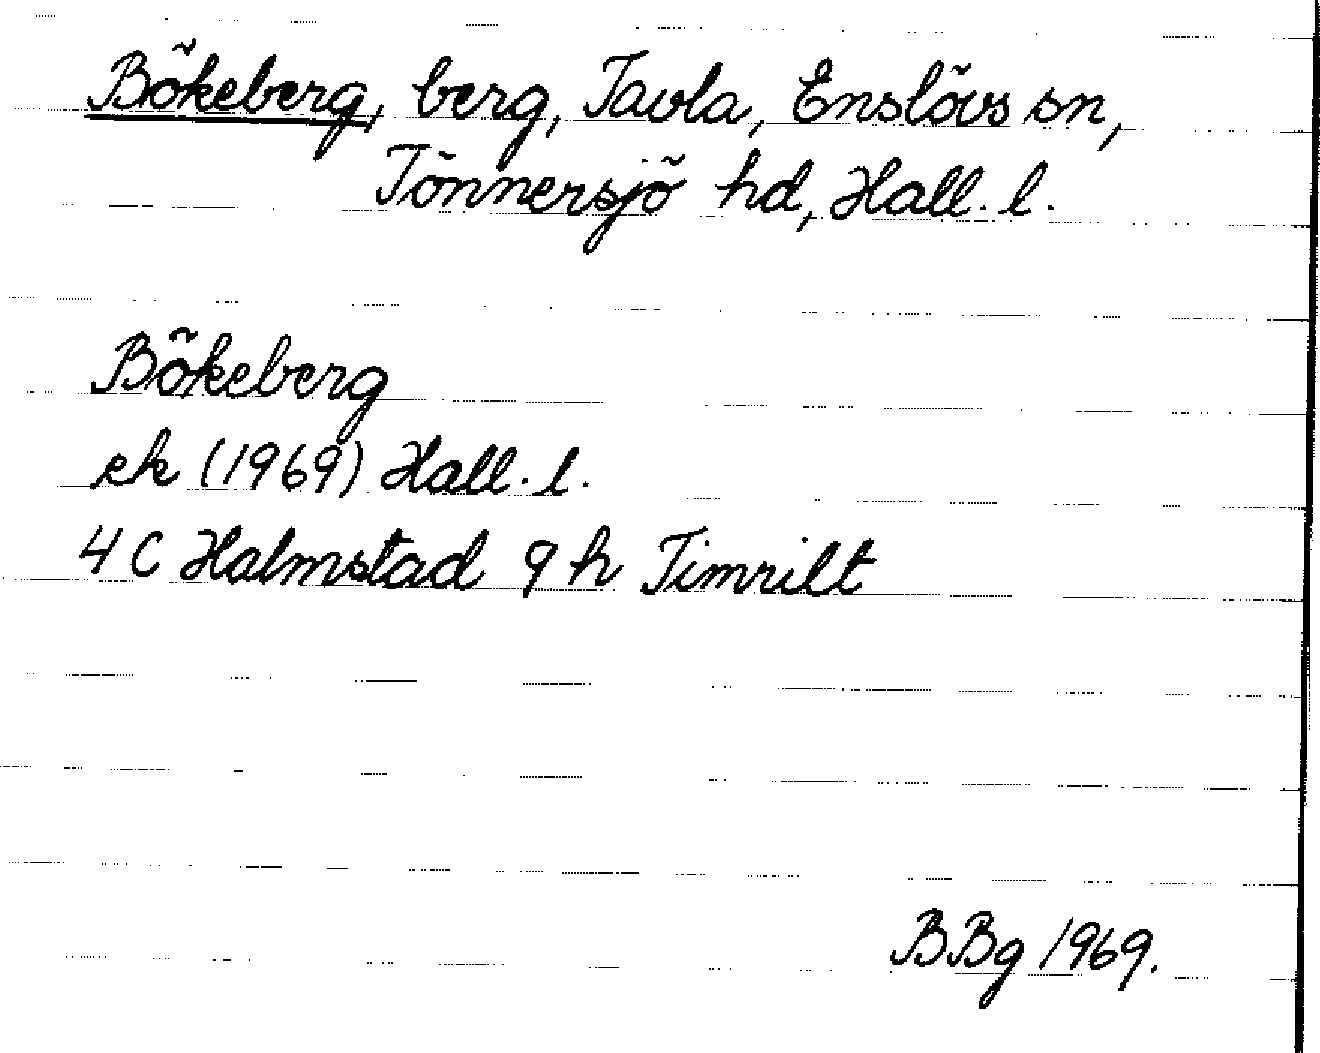 Bökeberg, berg, Tavla, Enslövs sn,
Tönnersjö hd, Hall. l.
Bökeberg
ek (1969) Hall. l.
4 C Halmstad 9 h Timrilt
BBg 1969.